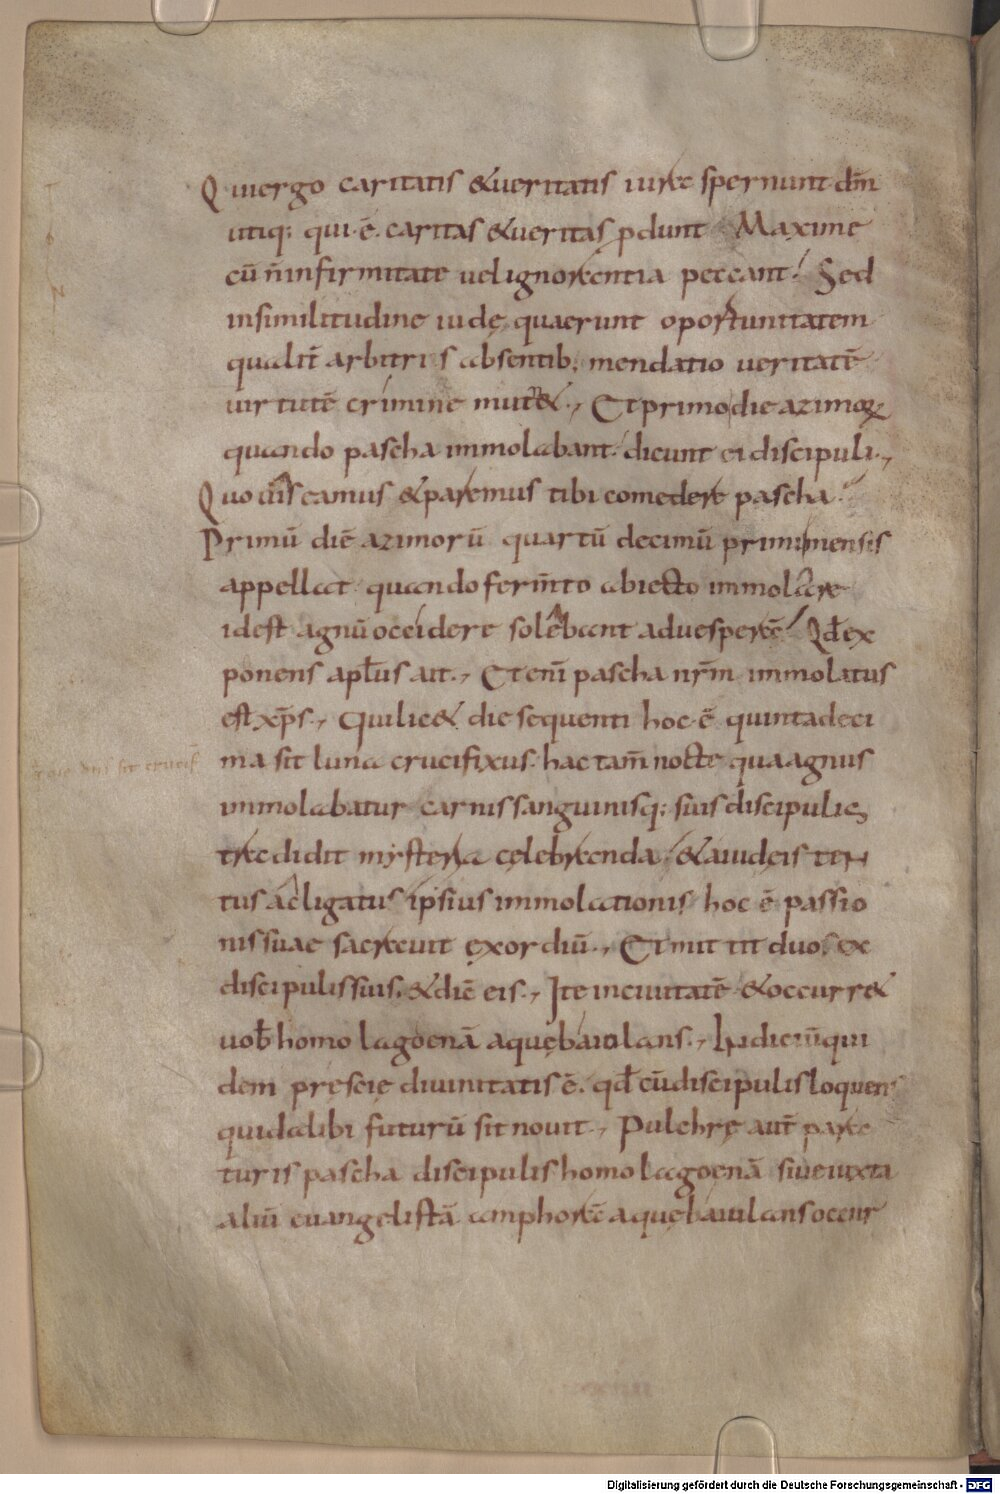 Qui ergo caritatis &ueritatis iura spernunt dm̄
utiq; qui ē. caritas &ueritas ꝓdunt Maxime
cū n̄ infirmitate uel ignorantia peccant. Sed
insimilitudine iudę quaerunt oportunitatem
qualit̄ arbitris absentib; mendatio ueritatē
uirtutē crimine mut&., Et primo die azimoꝝ
quando pascha immolabant. dicunt ei discipuli.,
Quo uis eamus &paremus tibi comedere pascha
Primū diē azimorū quartū decimū primi mensis
appellat quando ferm̄to abiecto immolare
id est agnū occidere solebant aduesperā Qd̄ ex
ponens apl̄us ait., Etenī pascha nr̄m immolatus
est xp̄s., Qui lic& die sequenti hoc ē quintadeci
ma sit luna crucifixus. hac tam̄ nocte qua agnus
immolabatur carnis sanguinisq; suis discipulis
tradidit mysteria celebranda &a iudęis ten
tus ac ligatus ipsius immolationis hoc ē passio
nis suae sacrauit exordiū., Et mittit duos ex
discipulis suis. &dic̄ eis., Ite in ciuitatē &occurr&
uob̄ homo lagoenā aquę baiolans., Iudiciū qui
dem pręscię diuinitatis ē. qd̄ cū discipulis loquens
quid alibi futurū sit nouit., Pulchrę aut̄ para
turis pascha discipulis homo lagoenā siue iuxta
aliū euangelistā amphorā aquę baiulans occur
dn̄s sit crucif
Digitalisierung gefördert durch die Deutsche Forschungsgemeinschaft - DFG